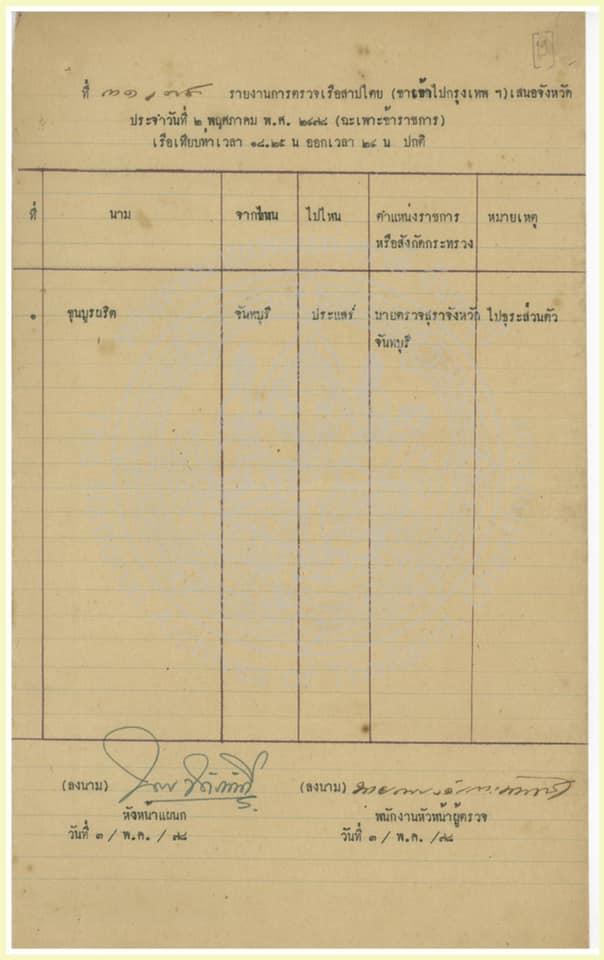 [๑]
ที่ ๓๑ / ๗๘ รายงานการตรวจเรือสาปไคย (ขาเข้าไปกรุงเทพ ฯ) เสนอจังหวัด
ประจำวันที่ ๒ พฤศภาคม พ.ศ. ๒๔๗๘ (ฉะเพาะข้าราชการ)
เรือเทียบท่าเวลา ๑๘.๒๕ น ออกเวลา ๒๔ น ปกติ
ที่ นาม จากไหน ไปไหน ตำแหน่งราชการ หมายเหตุ
หรือสังกัดกระทรวง
๑ ขุนบูรผริต จันทบุรี ประแสร์ นายตรวจสุราจังหวัด ไปธุระส่วนตัว
จันทบุรี
(ลงนาม) (ลงนาม)
หัวหน้าแผนก พนักงานหัวหน้าผู้ตรวจ
วันที่ ๓ / พ.ค. / ๗๘ วันที่ ๓ / พ.ค. / ๗๘
NATIONAL ARCHIVES OF THAILAND